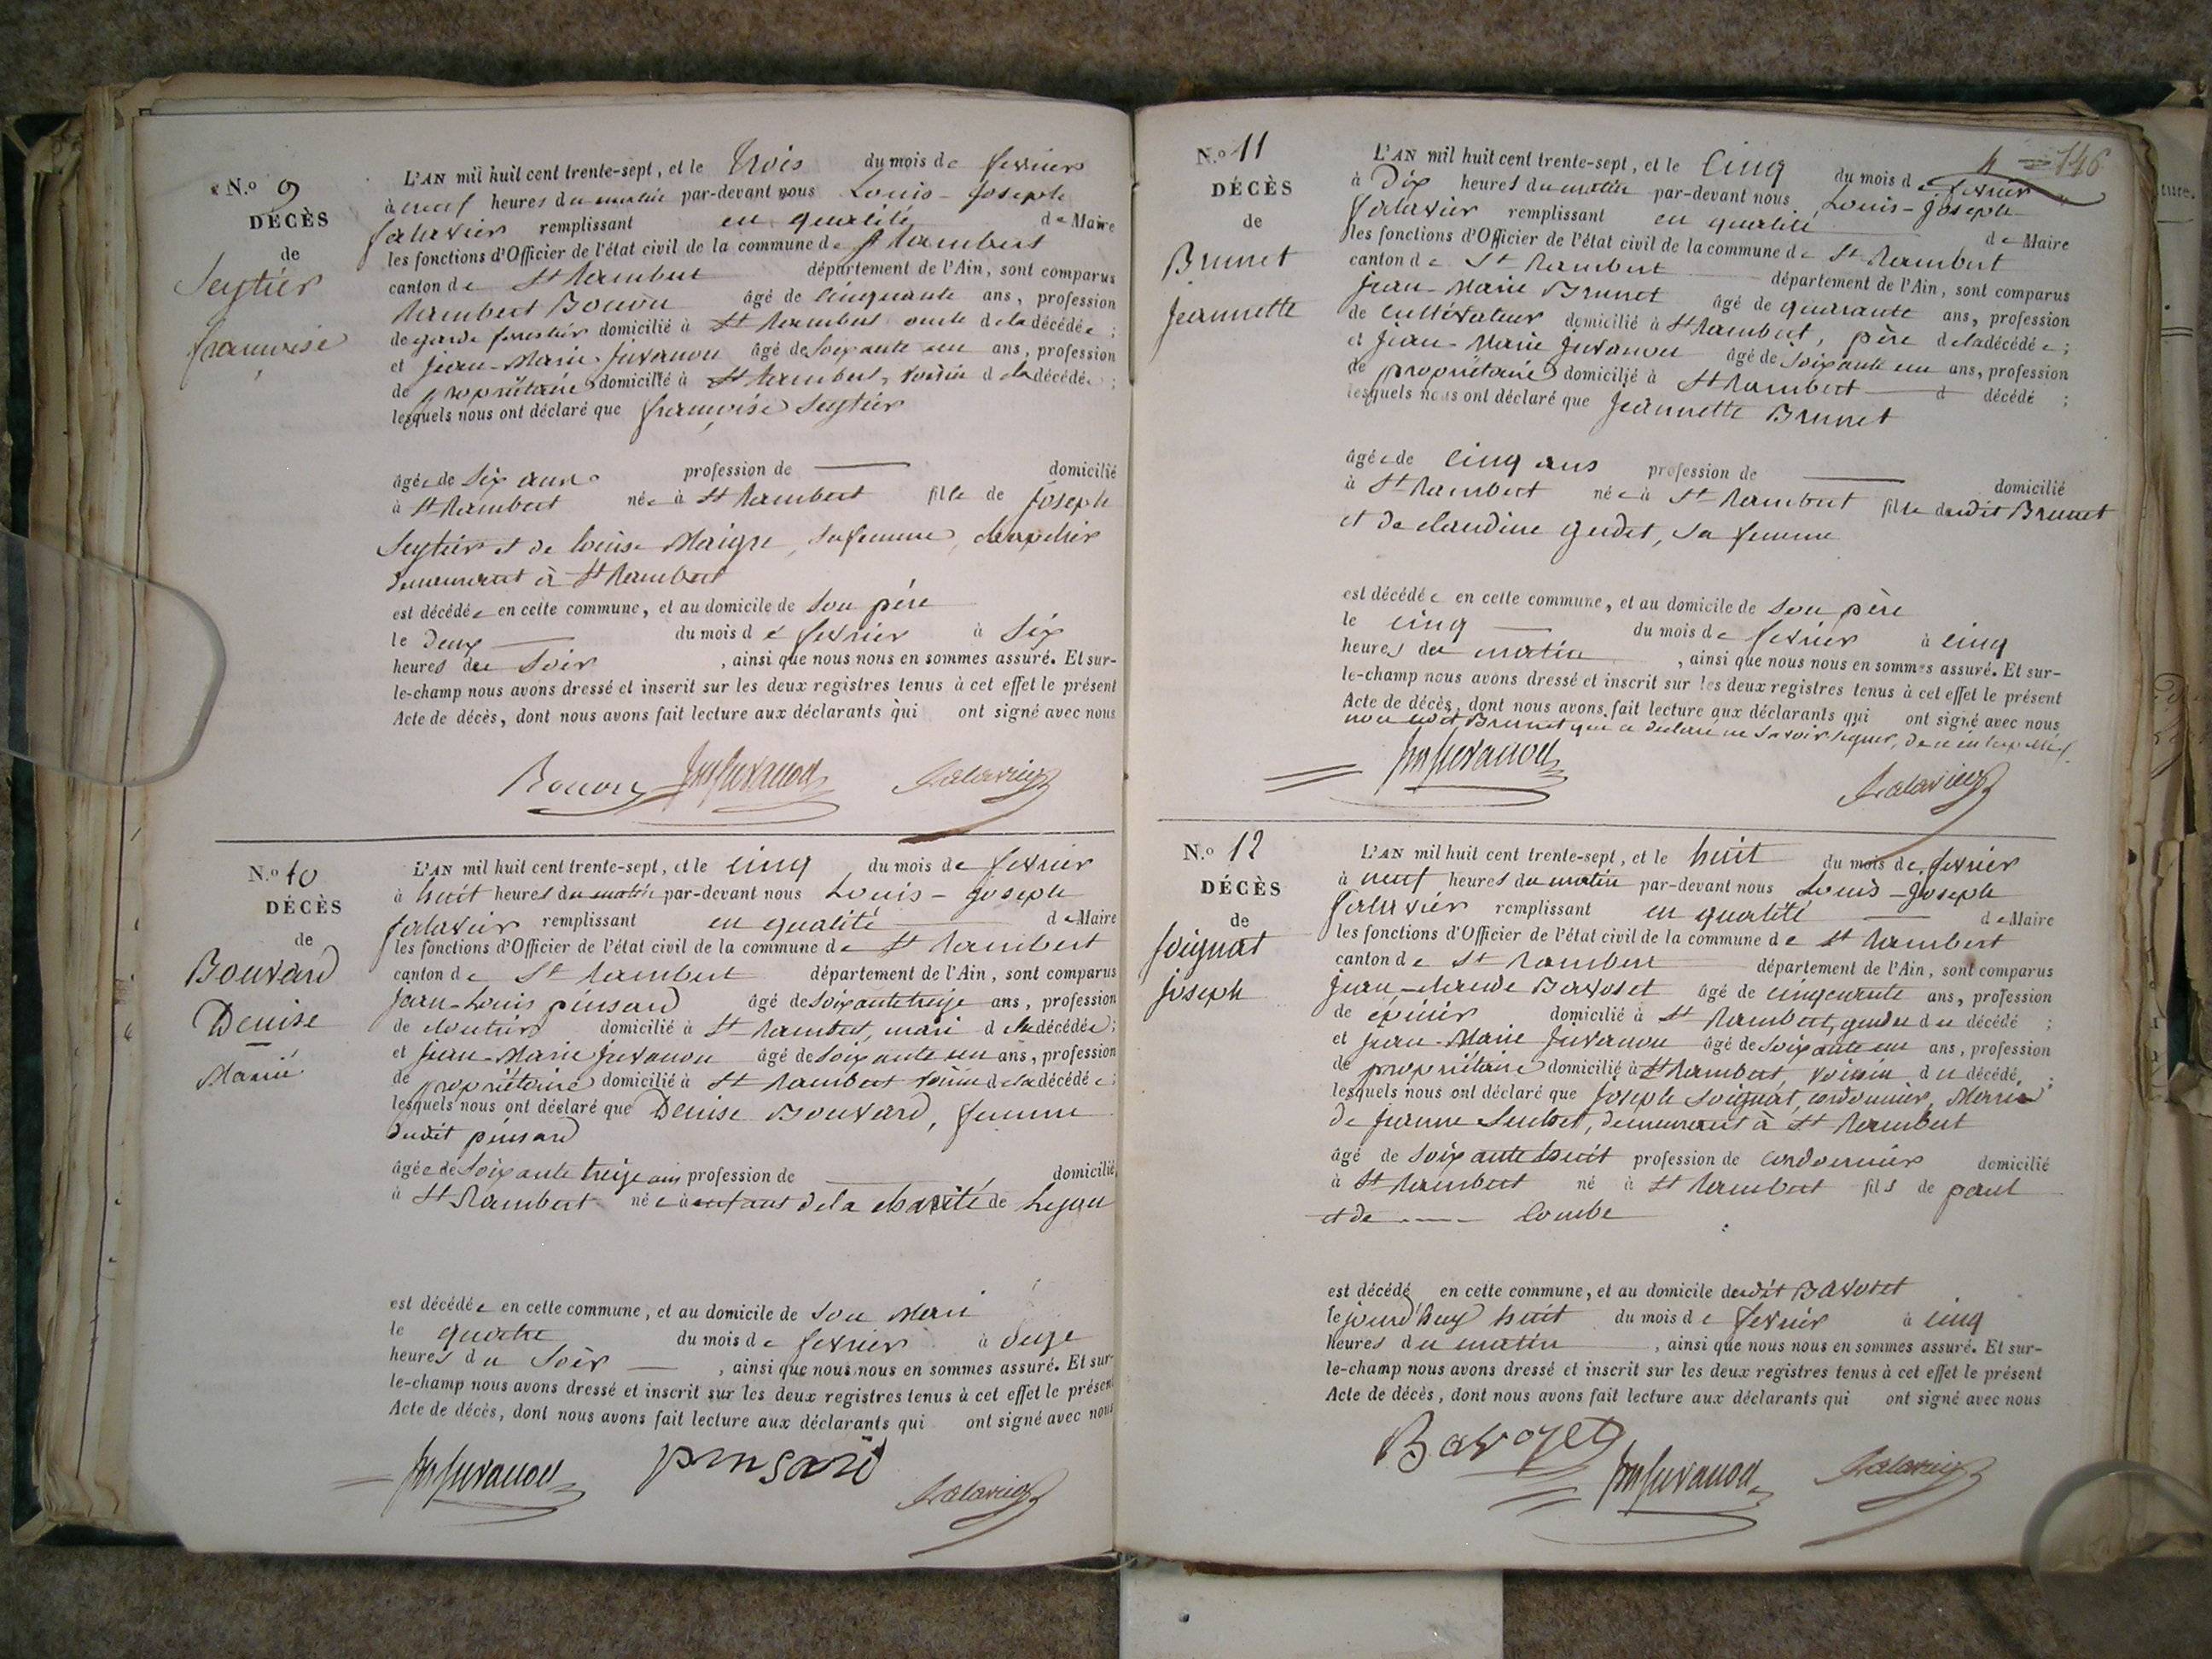 N.º 9
DÉCÈS
de
Seytier
françoise
L'AN mil huit cent trente-sept, et le trois du mois de fevrier
à neuf heures du matin par-devant nous Louis-Joseph
falavier remplissant en qualité de Maire
les fonctions d'Officier de l'état civil de la commune de St Rambert
canton de St Rambert département de l'Ain, sont comparus
Rambert Bouvu âgé de cinquante ans, profession
de garde forestier domicilié à St Rambert oncle de la décédée ;
et jean-Marie juvanon âgé de soixante un ans, profession
de propriétaire domicilié à St Rambert, voisin de la décédée ;
lesquels nous ont déclaré que françoise Seytier
âgée de Six ans profession de — domicilié
à St Rambert née à St Rambert fille de joseph
Seytier et de louise Maigre, sa femme, chapelier
demeurant à St Rambert
est décédée en cette commune, et au domicile de Son père
le Deux — du mois de fevrier à Six
heures du Soir , ainsi que nous nous en sommes assuré. Et sur-
le-champ nous avons dressé et inscrit sur les deux registres tenus à cet effet le présent
Acte de décès, dont nous avons fait lecture aux déclarants qui ont signé avec nous
jm juvanon falavier
N.º 10
DÉCÈS
de
Bouvard
Denise
Marié
L'AN mil huit cent trente-sept, et le cinq du mois de fevrier
à huit heures du matin par-devant nous Louis-Joseph
falavier remplissant en qualité de Maire
les fonctions d'Officier de l'état civil de la commune de St Rambert
canton de St Rambert département de l'Ain, sont comparus
jean-Louis pinsard âgé de soixante treize ans, profession
de cloutier domicilié à St Rambert, mari de la décédée ;
et jean-Marie juvanon âgé de soixante un ans, profession
de propriétaire domicilié à St Rambert voisin de la décédée ;
lesquels nous ont déclaré que Denise Bouvard, femme
dudit pinsard
âgée de Soixante treize ans profession de — domicilié
à St Rambert née à enfant de la charité de Lyon
est décédée en cette commune, et au domicile de Son Mari
le quatre du mois de fevrier à onze
heures du Soir — , ainsi que nous nous en sommes assuré. Et sur-
le-champ nous avons dressé et inscrit sur les deux registres tenus à cet effet le présent
Acte de décès, dont nous avons fait lecture aux déclarants qui ont signé avec nous
jm juvanon pinsard falavier
146
N.º 11
DÉCÈS
de
Brunet
Jeannette
L'AN mil huit cent trente-sept, et le cinq du mois de fevrier
à Dix heures du matin par-devant nous Louis-Joseph
falavier remplissant en qualité de Maire
les fonctions d'Officier de l'état civil de la commune de St Rambert
canton de St Rambert département de l'Ain, sont comparus
jean-Marie Brunet âgé de quarante ans, profession
de cultivateur domicilié à St Rambert, père de la décédée ;
et jean-Marie juvanon âgé de soixante un ans, profession
de propriétaire domicilié à St Rambert — d décédé ;
lesquels nous ont déclaré que Jeannette Brunet
âgée de cinq ans profession de — domicilié
à St Rambert née à St Rambert fille dudit Brunet
et de claudine gudet, sa femme
est décédée en cette commune, et au domicile de Son père
le cinq — du mois de fevrier à cinq
heures du matin , ainsi que nous nous en sommes assuré. Et sur-
le-champ nous avons dressé et inscrit sur les deux registres tenus à cet effet le présent
Acte de décès, dont nous avons fait lecture aux déclarants qui ont signé avec nous
non ledit Brunet qui a declaré ne savoir signer, de ce
jm juvanon falavier
N.º 12
DÉCÈS
de
Soignat
joseph
L'AN mil huit cent trente-sept, et le huit du mois de fevrier
à neuf heures du matin par-devant nous Louis-Joseph
falavier remplissant en qualité — de Maire
les fonctions d'Officier de l'état civil de la commune de St Rambert
canton de St Rambert département de l'Ain, sont comparus
jean-claude Bavoset âgé de cinquante ans, profession
de épicier domicilié à St Rambert, gendre du décédé ;
et jean-Marie juvanon âgé de soixante un ans, profession
de propriétaire domicilié à St Rambert, voisin du décédé ;
lesquels nous ont déclaré que joseph Soignat, cordonnier, Marié
de jeanne demeurant à St Rambert
âgé de soixante huit profession de cordonnier domicilié
à St Rambert né à St Rambert fils de paul
et de ---- Combe
est décédé en cette commune, et au domicile dudit Bavoset
le jourd'huy huit du mois de fevrier à cinq
heures du matin , ainsi que nous nous en sommes assuré. Et sur-
le-champ nous avons dressé et inscrit sur les deux registres tenus à cet effet le présent
Acte de décès, dont nous avons fait lecture aux déclarants qui ont signé avec nous
Bavozet jm juvanon falavier